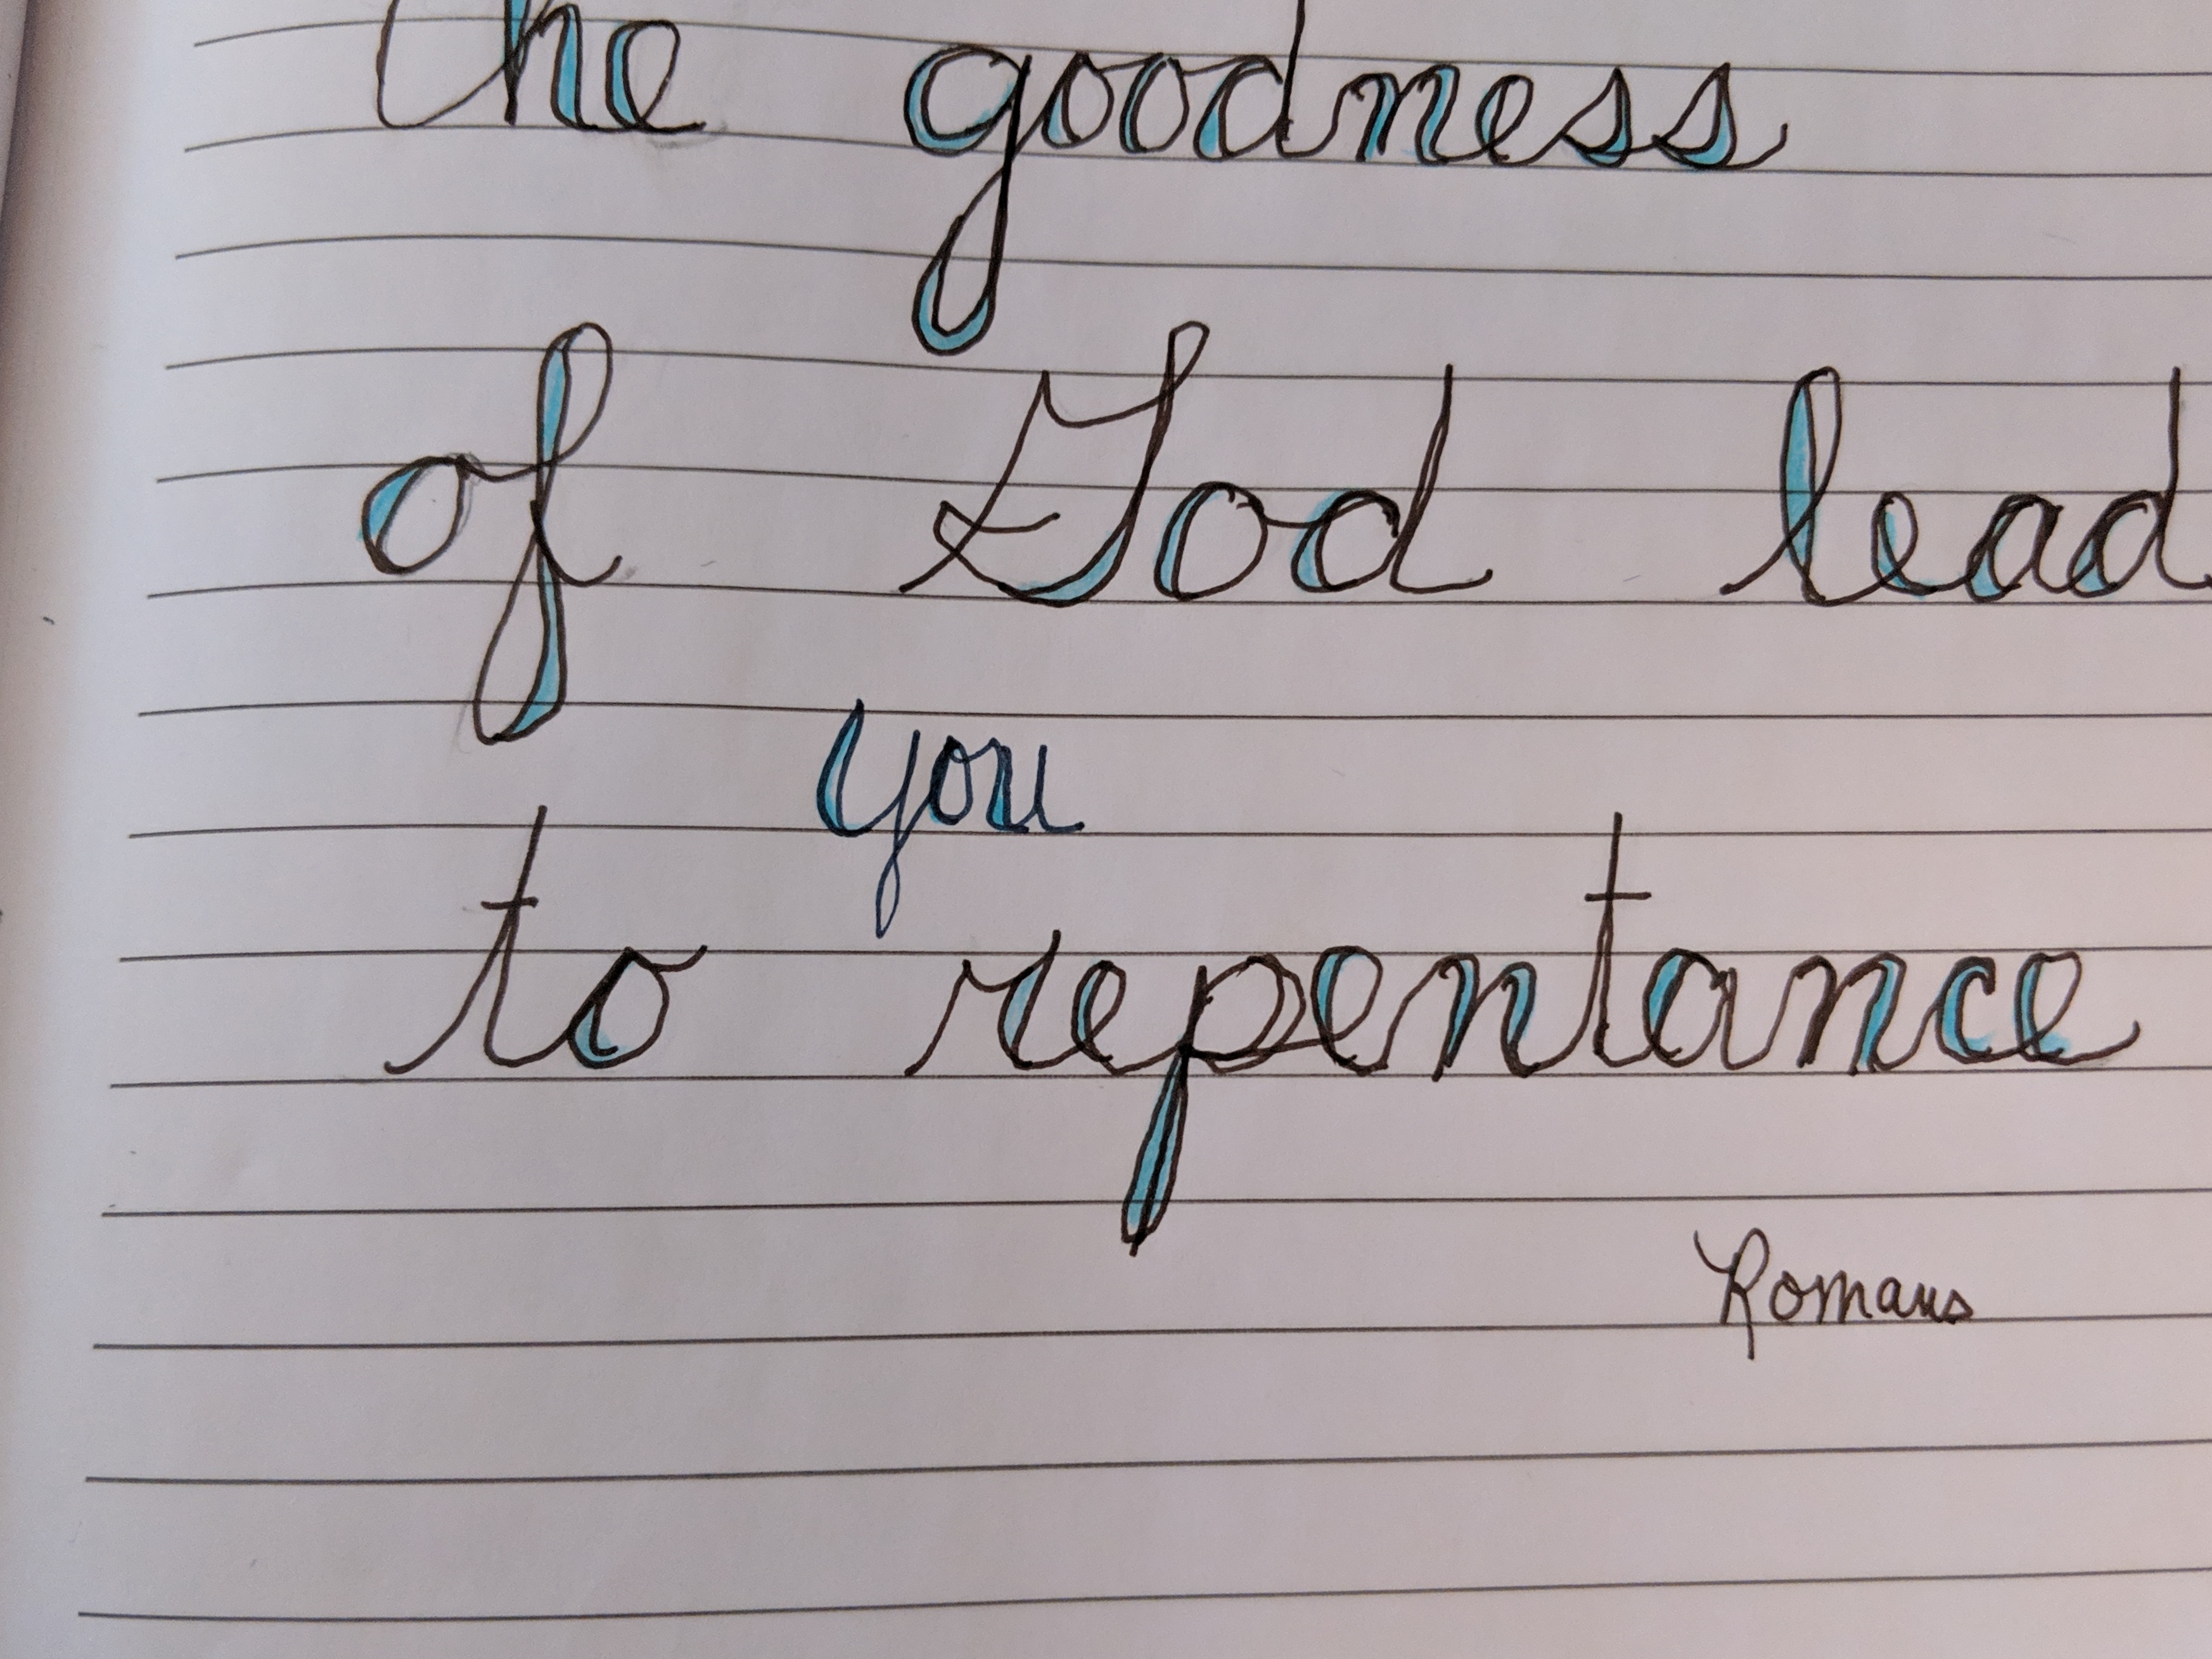 the goodness
of God lead
you
to repentance
Romans